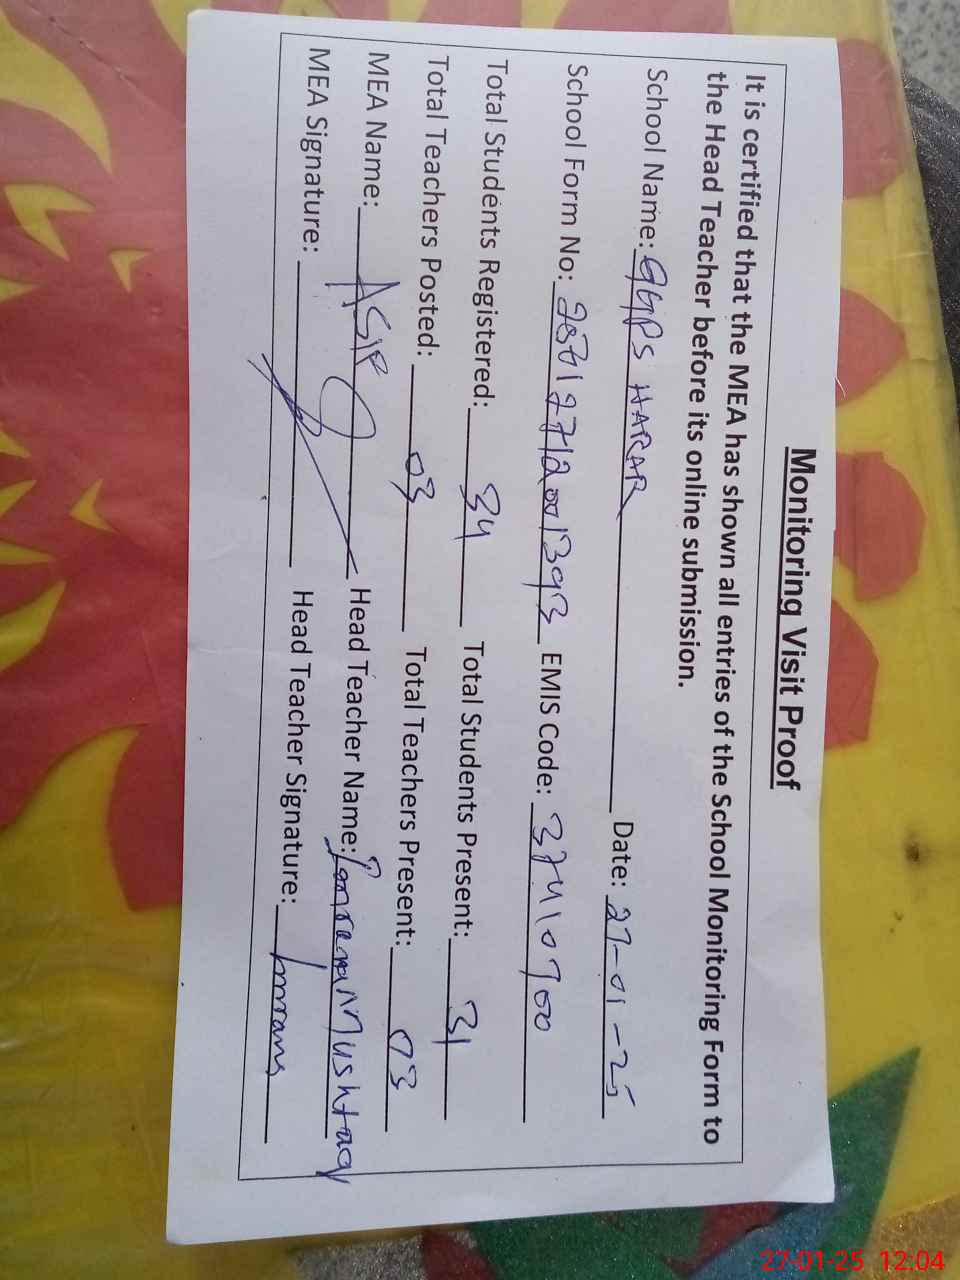 Monitoring Visit Proof
It is certified that the MEA has shown all entries of the School Monitoring Form to
the Head Teacher before its online submission.
School Name: GGPS HARAR Date: 27-01-25
School Form No: EMIS Code: 37410700
Total Students Registered: 34 Total Students Present: 31
Total Teachers Posted: 03 Total Teachers Present: 03
MEA Name: ASIF Head Teacher Name: Mushtaq
MEA Signature: Head Teacher Signature:
27-01-25 12:04